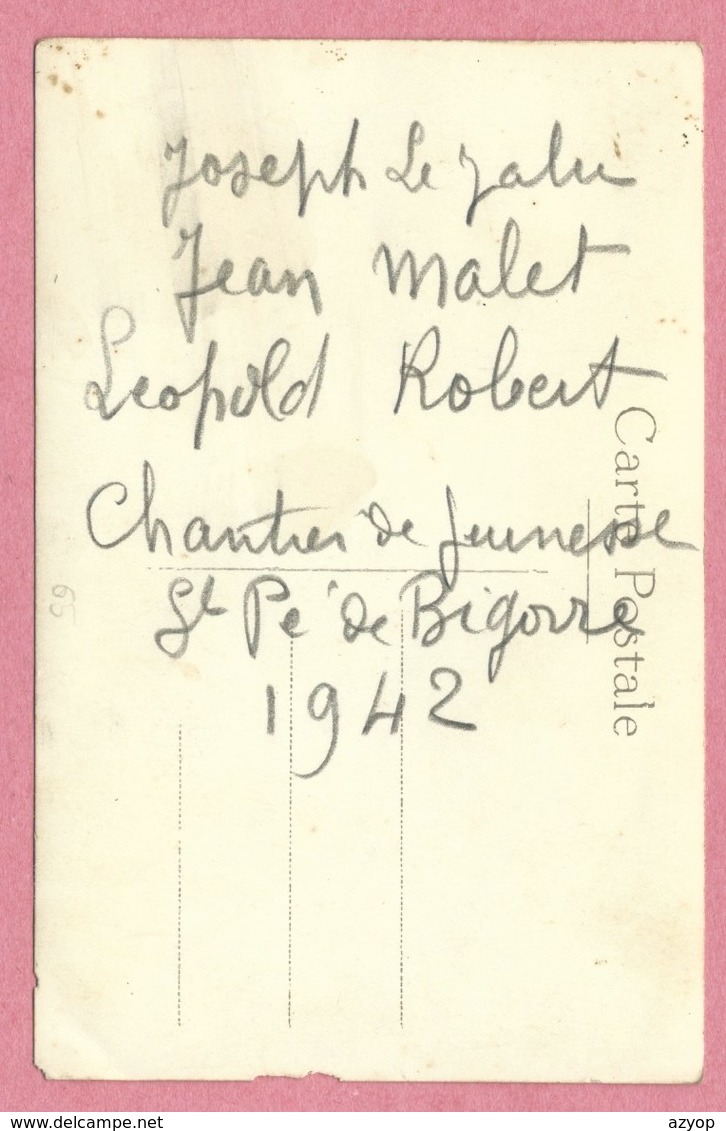 Joseph Le Jalu
Jean Malet
Leopold Robert
Chantier de Jeunesse
St Pé de Bigorre
1942
Carte Postale
65
www.delcampe.net
azyop